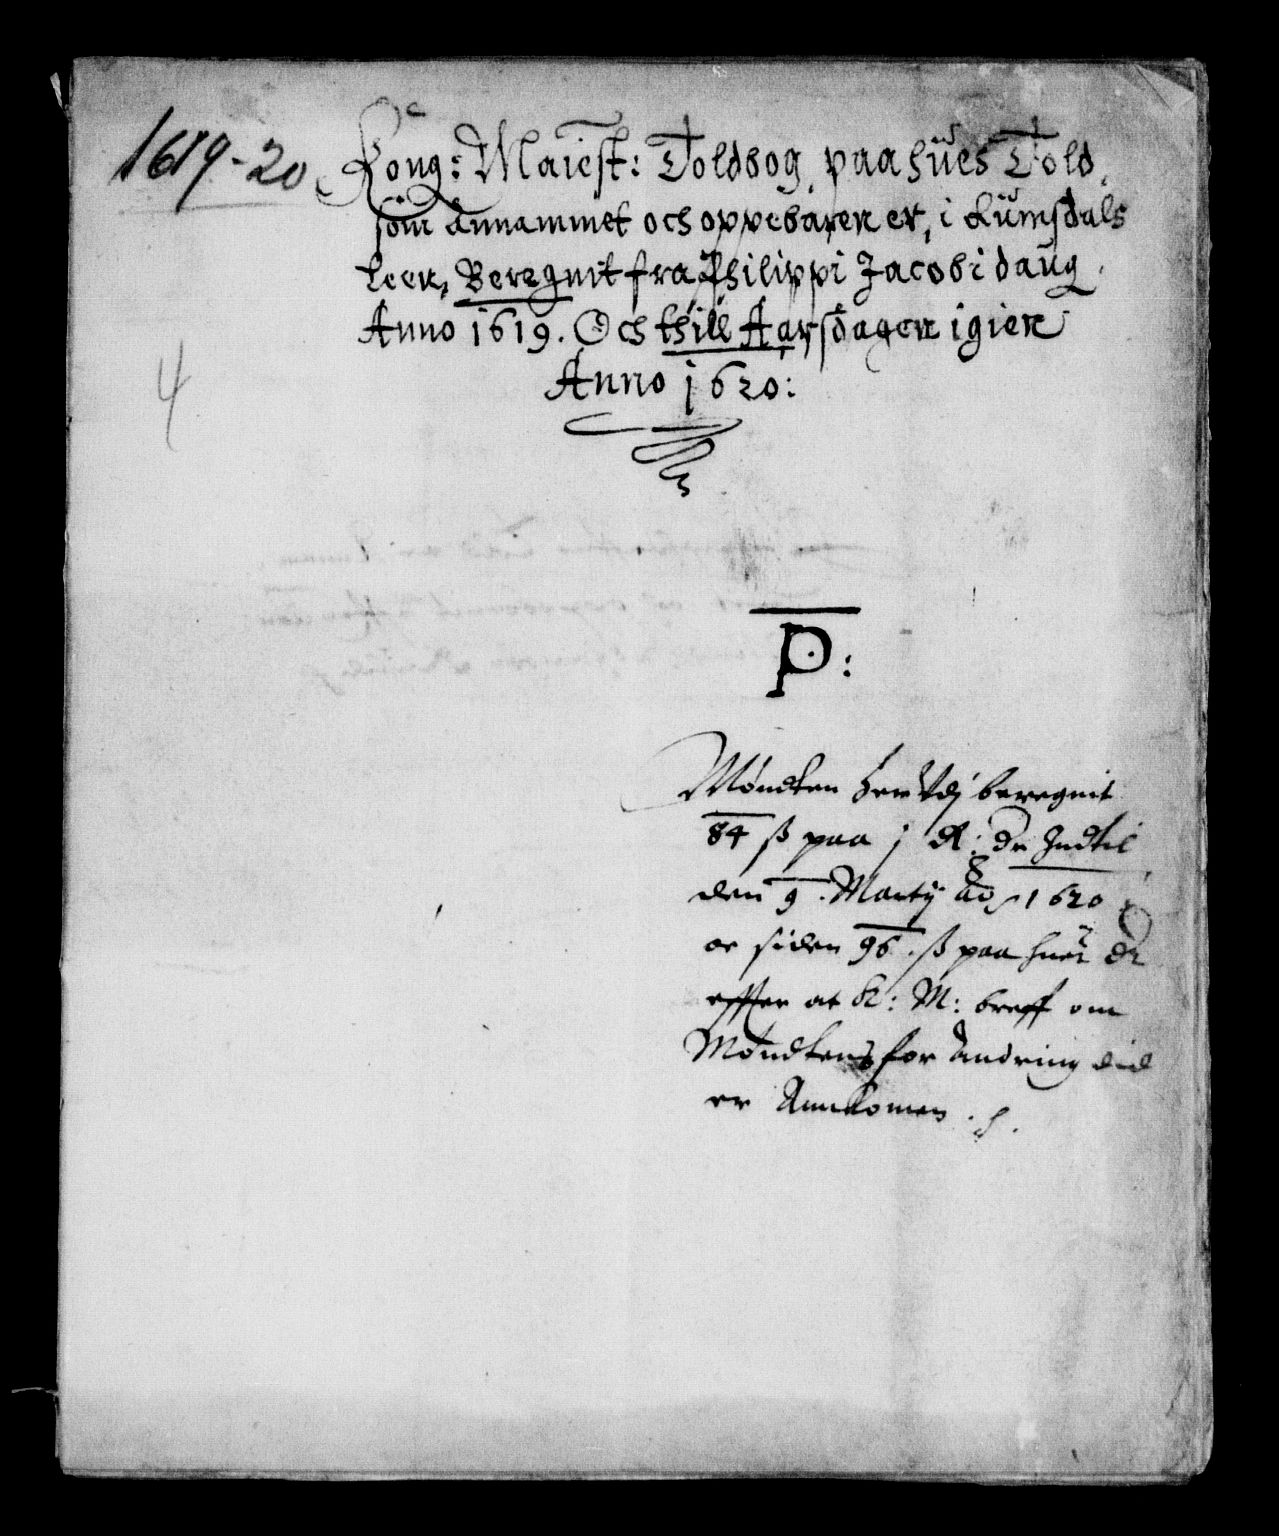 1619-20
Kong: Maiest: Toldbog, paa hues Told,
som Annammet och oppebaren er, i Lumsdals
Leen, Beregnit fra Philippi Jacobi daug
Anno 1619. Och thill Aarsdagen igien
Anno 1620:
4
P:
Møndten her Udj beregnit
84 ß paa j dr: Indtil
den 9. Martij Ao 1620
oc siden 96. ß paa huer dr
effter at K: M: breff om
Møndtens for Andring did
er Ankomen.